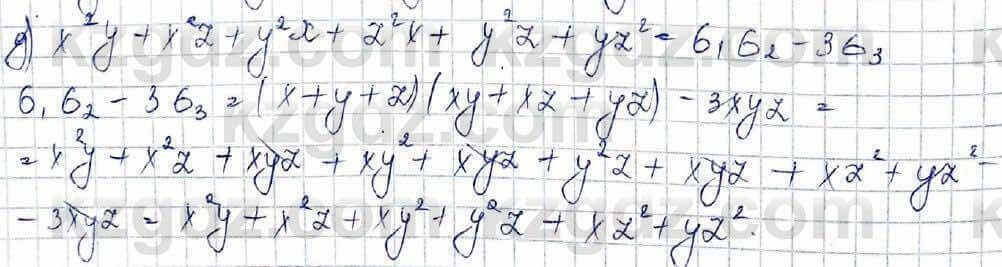 д) x²y + x²z + y²x + z²x + y²z + yz² = б₁б₂ - 3б₃
б₁б₂ - 3б₃ = (x+y+z)(xy+xz+yz) - 3xyz =
= x²y + x²z + xyz + xy² + xyz + y²z + xyz + xz² + yz² -
- 3xyz = x²y + x²z + xy² + y²z + xz² + yz².